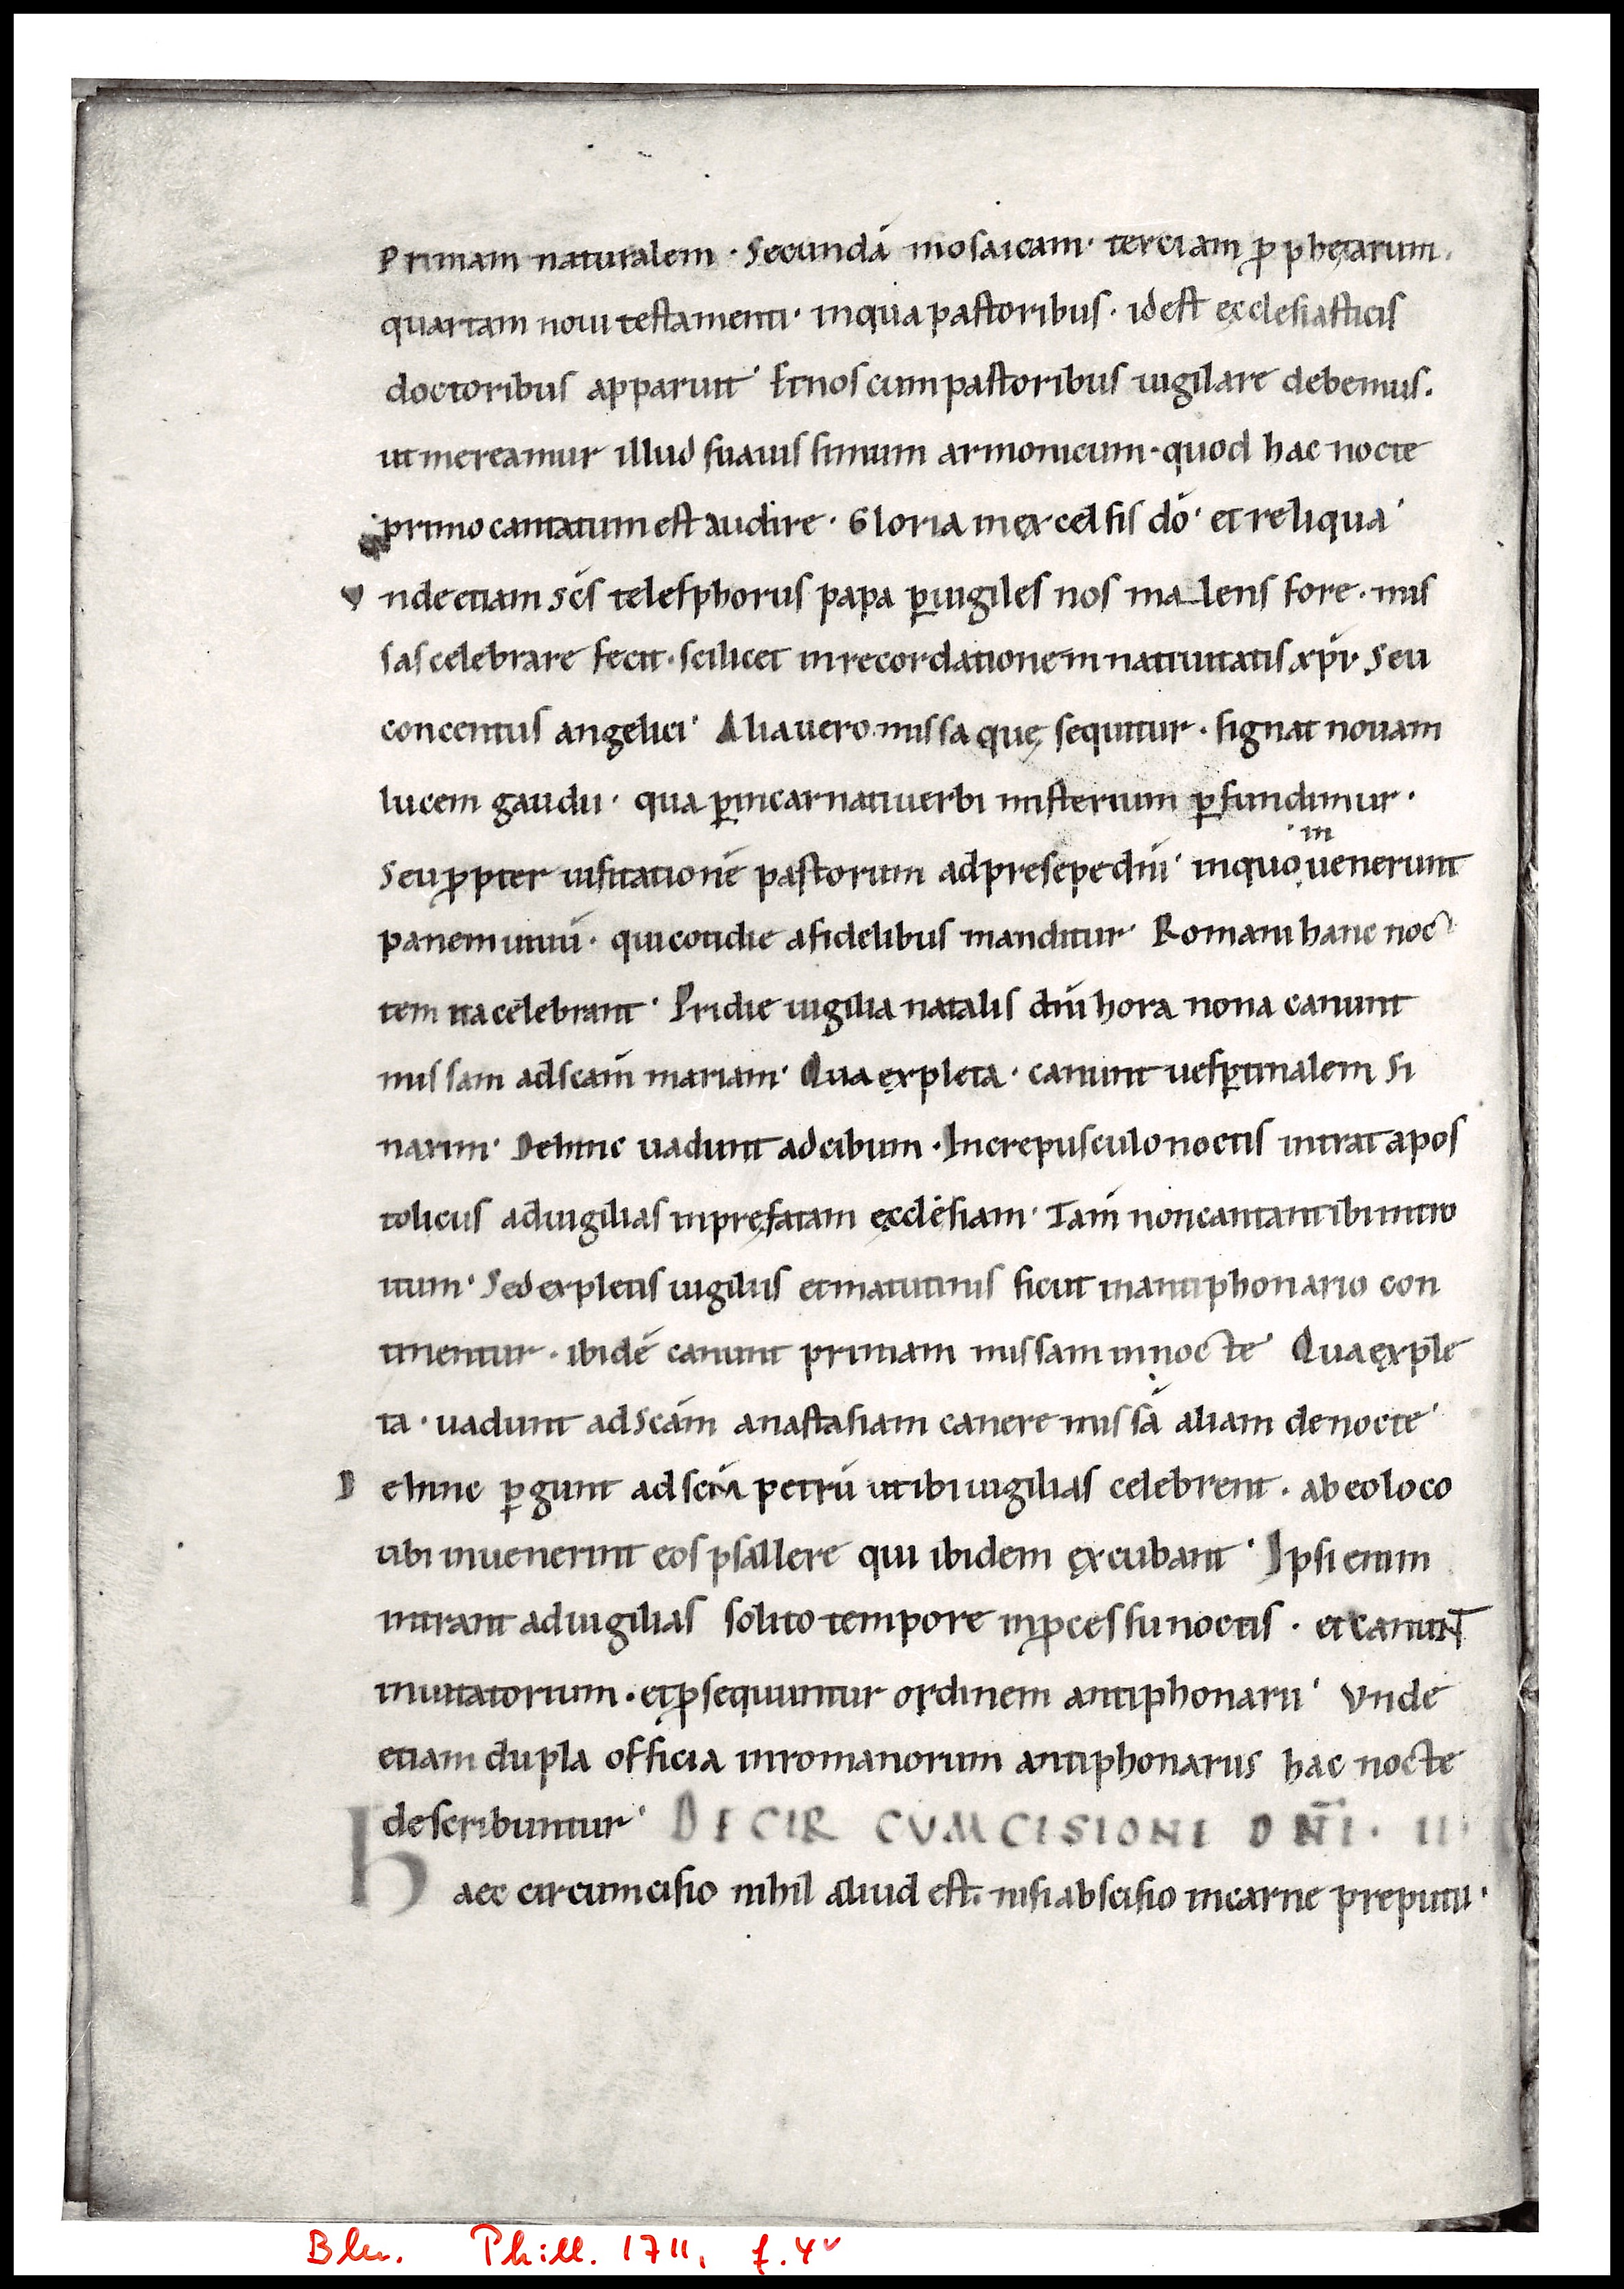 Primam naturalem · Secundā mosaicam · terciam ꝓphetarum ·
quartam noui testamenti · inqua pastoribus · idest ęcclesiasticis
doctoribus apparuit · Et nos cum pastoribus uigilare debemus ·
ut mereamur illud suauissimum armonicum · quod hac nocte
primo cantatum est audire · Gloria in excelsis dō · et reliqua ·
Vnde etiam scs̄ telesphorus papa ꝑuigiles nos malens fore · mis
sas celebrare fecit · scilicet in recordationem natiuitatis xp̄i · Seu
concentus angelici · Alia uero missa quę sequitur · signat nouam
lucem gaudii · qua ꝑ incarnati uerbi misterium ꝑfundimur ·
Seu ꝓpter uisitationē pastorum ad presepe dn̄i · in quo inuenerunt
panem uiuū · qui cotidie a fidelibus manditur · Romani hanc noc
tem ita celebrant · Pridie uigilia natalis dn̄i hora nona canunt
missam ad scam̄ mariam · Qua expleta · canunt uesꝑtinalem si
naxim · Dehinc uadunt ad cibum · In crepusculo noctis intrat apos
tolicus ad uigilias in prefatam ęcclesiam · Tam̄ non cantant ibi intro
itum · Sed expletis uigiliis et matutinis sicut in antiphonario con
tinentur · ibidē canunt primam missam in nocte · Qua exple
ta · uadunt ad scam̄ anastasiam canere missā aliam de nocte ·
Dehinc ꝑgunt ad scm̄ petrū ut ibi uigilias celebrent · ab eo loco
ubi inuenerint eos psallere qui ibidem excubant · Ipsi enim
intrant ad uigilias solito tempore in ꝓcessu noctis · et canunt
inuitatorium · et ꝓsequuntur ordinem antiphonarii · Vnde
etiam dupla officia in romanorum antiphonariis hac nocte
describuntur · DE CIRCVMCISIONE DN̄I · II
Haec circumcisio nihil aliud est · nisi abscisio in carne preputii ·
Bln. Phill. 1711, f. 4v